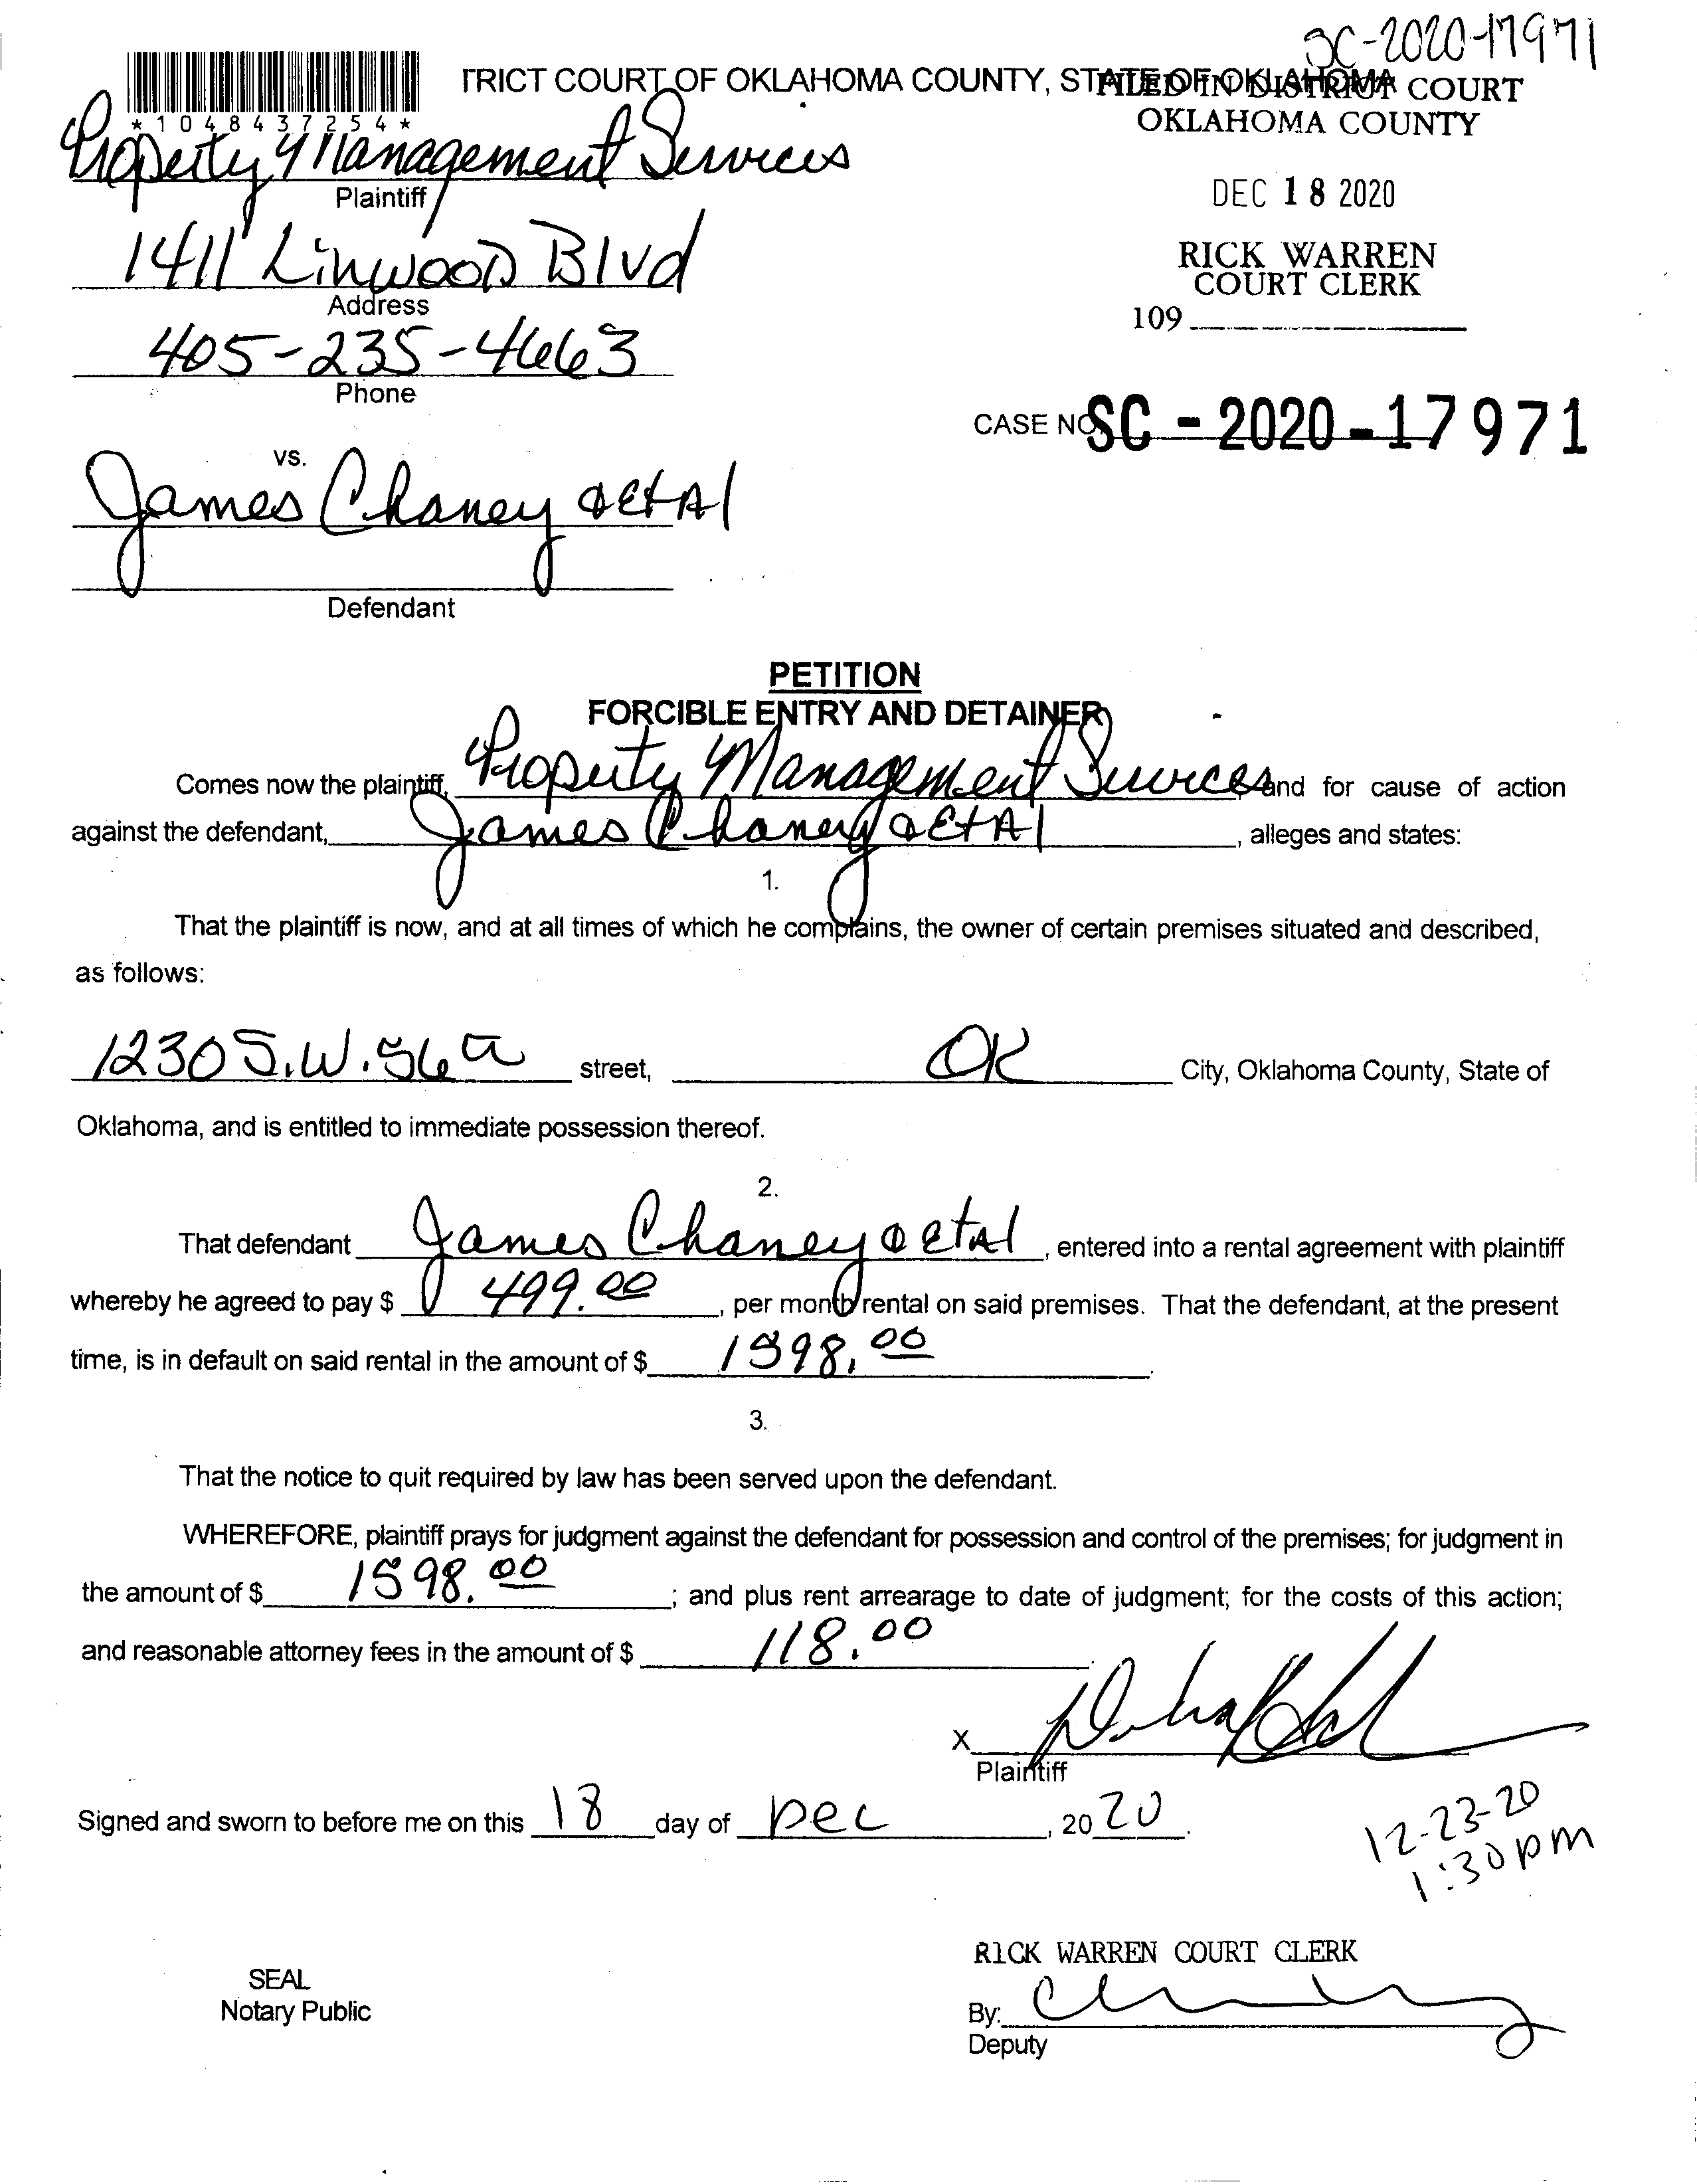 SC-2020-17971
TRICT COURT OF OKLAHOMA COUNTY, STATE OF OKLAHOMA
FILED IN DISTRICT COURT
OKLAHOMA COUNTY
*1048437254*
Property Management Services
Plaintiff
DEC 18 2020
1411 Linwood Blvd
Address
RICK WARREN
COURT CLERK
109
405-235-4663
Phone
CASE NO. SC - 2020 - 17971
vs.
James Chaney & EtAl
Defendant
PETITION
FORCIBLE ENTRY AND DETAINER
Comes now the plaintiff, Property Management Services, and for cause of action
against the defendant, James Chaney & EtAl, alleges and states:
1.
That the plaintiff is now, and at all times of which he complains, the owner of certain premises situated and described,
as follows:
1230 S.W. street, OK City, Oklahoma County, State of
Oklahoma, and is entitled to immediate possession thereof.
2.
That defendant James Chaney & etAl, entered into a rental agreement with plaintiff
whereby he agreed to pay $ 499.00, per month rental on said premises. That the defendant, at the present
time, is in default on said rental in the amount of $ 1598.00.
3.
That the notice to quit required by law has been served upon the defendant.
WHEREFORE, plaintiff prays for judgment against the defendant for possession and control of the premises; for judgment in
the amount of $ 1598.00; and plus rent arrearage to date of judgment; for the costs of this action;
and reasonable attorney fees in the amount of $ 118.00.
X
Plaintiff
Signed and sworn to before me on this 18 day of Dec, 2020.
12-23-20
1:30pm
RICK WARREN COURT CLERK
SEAL
Notary Public
By:
Deputy